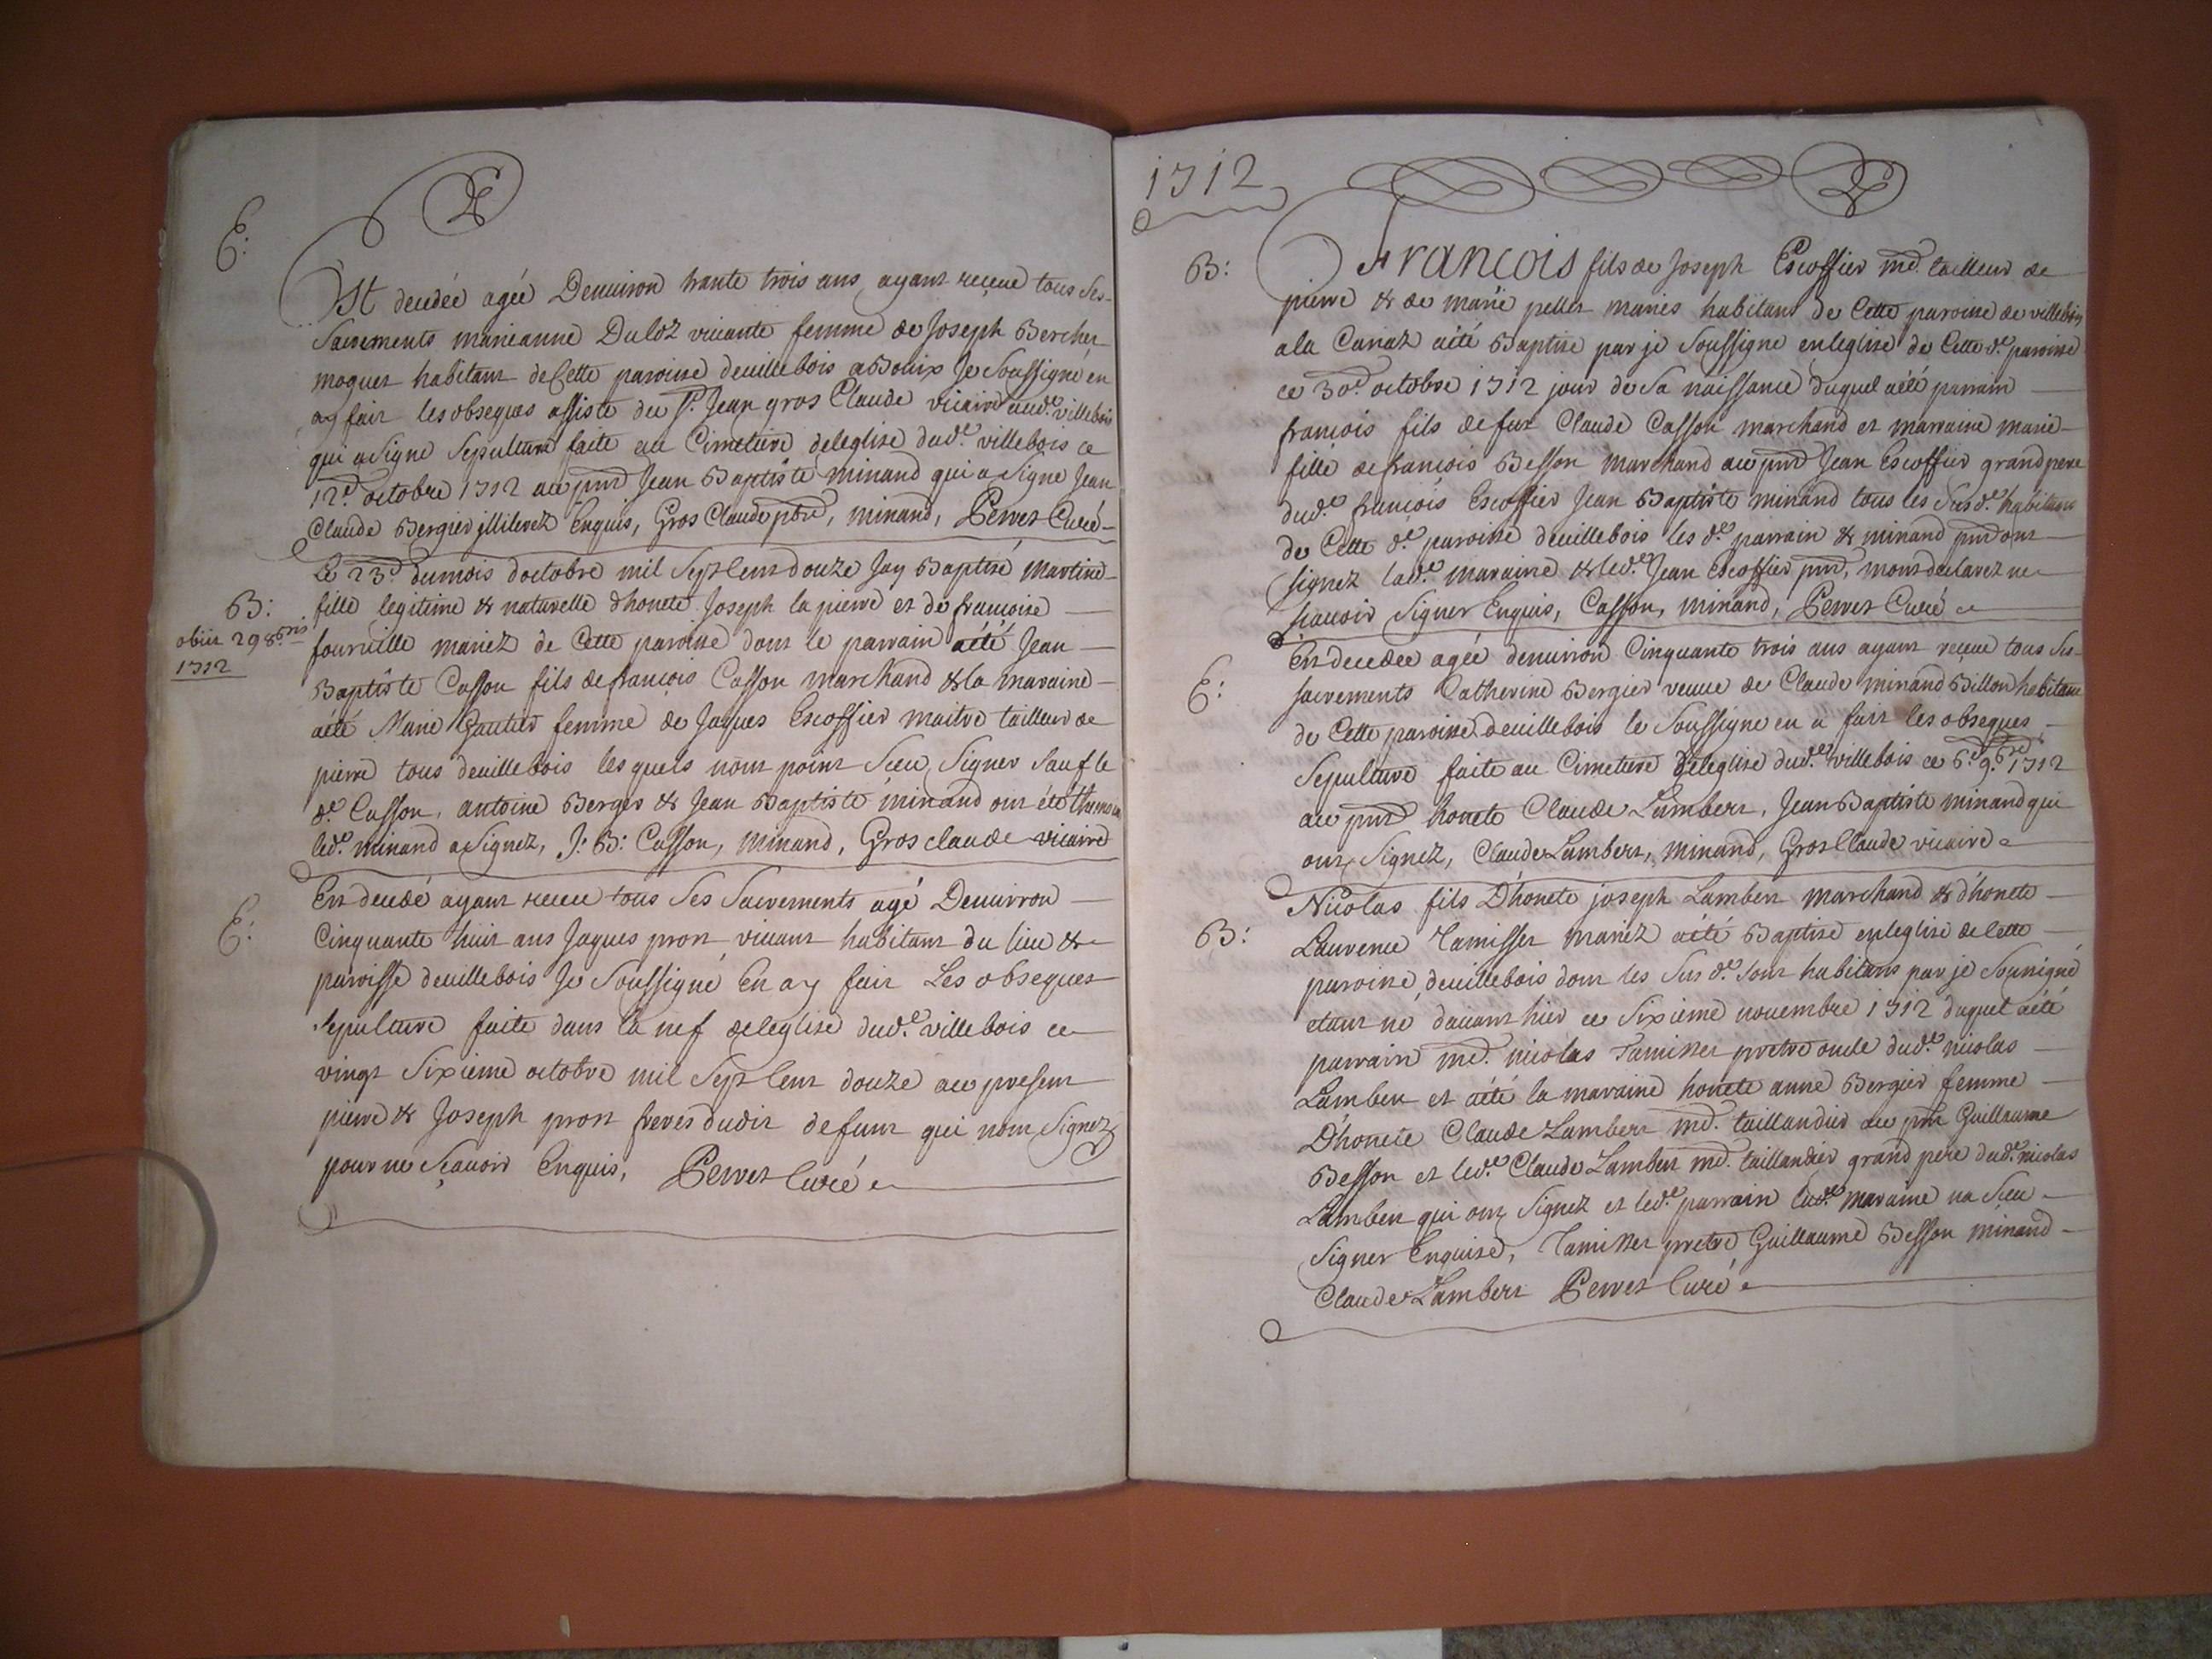 E:
Est decedée agée Denuiron trante trois ans ayant reçeue tous ses
Sacrements marieanne Duloz viuante femme de Joseph Bercher
moquet habitant de Cette paroisse deuillebois a Bouix Je Soussigné en
ay fait les obseques assiste du Sr. Jean gros Claude vicaire aud.e villebois
qui a Signe Sepulture faite au Cimetiere deleglise dud.e villebois ce
12.e octobre 1712 au pnt Jean Baptiste minand qui a Signe Jean
Claude Bergier illiterez Enquis, Gros Claude pbre, minand, Perret Curé
B:
obiit 29 8bris
1712
Le 23.e dumois doctobre mil Sept Cens douze Jay Baptisé martine
fille legitime & naturelle dhonete Joseph la pierre et de francoise
fournille mariez de Cette paroisse dont le parrain aété Jean
Baptiste Casson fils de françois Casson marchand & la maraine
aété Marie Gautier femme de Jaques Escoffier maitre tailleur de
pierre tous deuillebois les quels nont point Sceu Signer Sauf le
d.e Casson, antoine Berger & Jean Baptiste minand ont été themoin
led.e minand a Signez, J: B: Casson, minand, Gros claude vicaire
E:
Est decedé ayant receu tous Ses Sacrements agé Denuirron
Cinquante huit ans Jaques pron viuant habitant du lieu &
paroisse deuillebois Je Soussigné En ay fait Les obseques
Sepulture faite dans la nef deleglise dud.e villebois ce
vingt Sixieme octobre mil Sept Cent douze au present
pierre & Joseph pron freres dudit defunt qui nont Signez
pour ne Sçauoir Enquis, Perret Curé
1712
B:
Francois fils de Joseph Escoffier md. tailleur de
pierre & de marie pellet mariés habitant de Cette paroisse de villebois
ala Carraz aété Baptise par je Soussigne enleglise de Cette d.e paroisse
ce 30.e octobre 1712 jour de Sa naissance duquel aété parrain
francois fils de feu Claude Casson marchand et marraine marie
fille defrancois Besson marchand au pnt Jean Escoffier grandpere
dud.e francois Escoffier Jean Baptiste minand tous les Susd.e habitans
de Cette d.e paroisse deuillebois les d.e parrain & minand pnt ont
signez lad.e maraine & led.e Jean Escoffier pnt, mont declarez ne
scauoir Signer Enquis, Casson, minand, Perret Curé
E:
Est decedée agée denuirron Cinquante trois ans ayant receue tous Ses
sacrements Catherine Bergier veuue de Claude minand Billon habitante
de Cette paroisse deuillebois le Soussigne en a fait les obseques
Sepulture faite au Cimetiere deleglise dud.e villebois ce 6.e 9.bre 1712
au pnt honete Claude Lambert, Jean Baptiste minand qui
ont Signez, Claude Lambert, minand, Gros Claude vicaire
B:
Nicolas fils Dhonete joseph Lambert marchand & d'honete
Laurence Tamisser mariez aété Baptise enleglise de Cette
paroisse deuillebois dont les Sus d.e Sont habitans par je Soussigné
etant né dauant hier ce Sixieme nouembre 1712 duquel aété
parrain md. nicolas Tamisser pretre oncle dud.e nicolas
Lambert et aété la maraine honete anne Bergier femme
Dhonete Claude Lambert md. taillandier au pnt Guillaume
Besson et led.e Claude Lambert md. taillandier grand pere dud.e nicolas
Lambert qui ont Signez et led.e parrain lad.e maraine na Sceu
Signer Enquise, Tamisser pretre Guillaume Besson minand
Claude Lambert Perret Curé